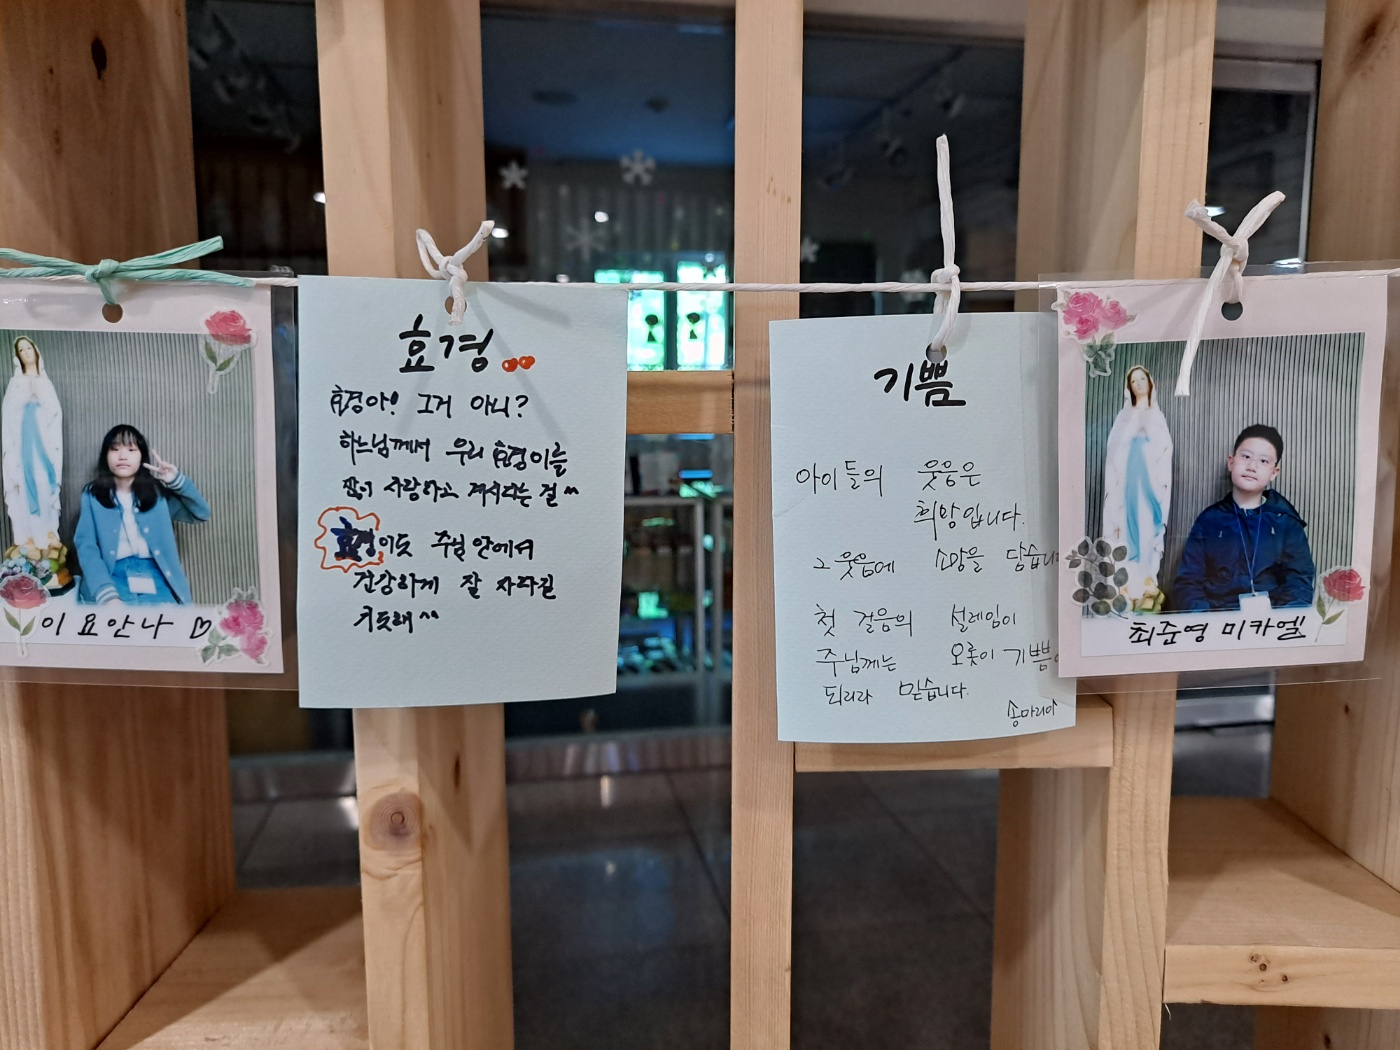 이 요안나
효경
효경아! 그거 아니?
하느님께서 우리 효경이를
많이 사랑하고 계시다는 걸^^
효경이도 주님 안에서
건강하게 잘 자라길
기도해^^
기쁨
아이들의 웃음은
희망입니다.
그 웃음에 소망을 담습니다
첫 걸음의 설레임이
주님께는 오롯이 기쁨
되리라 믿습니다.
송마리아
최준영 미카엘